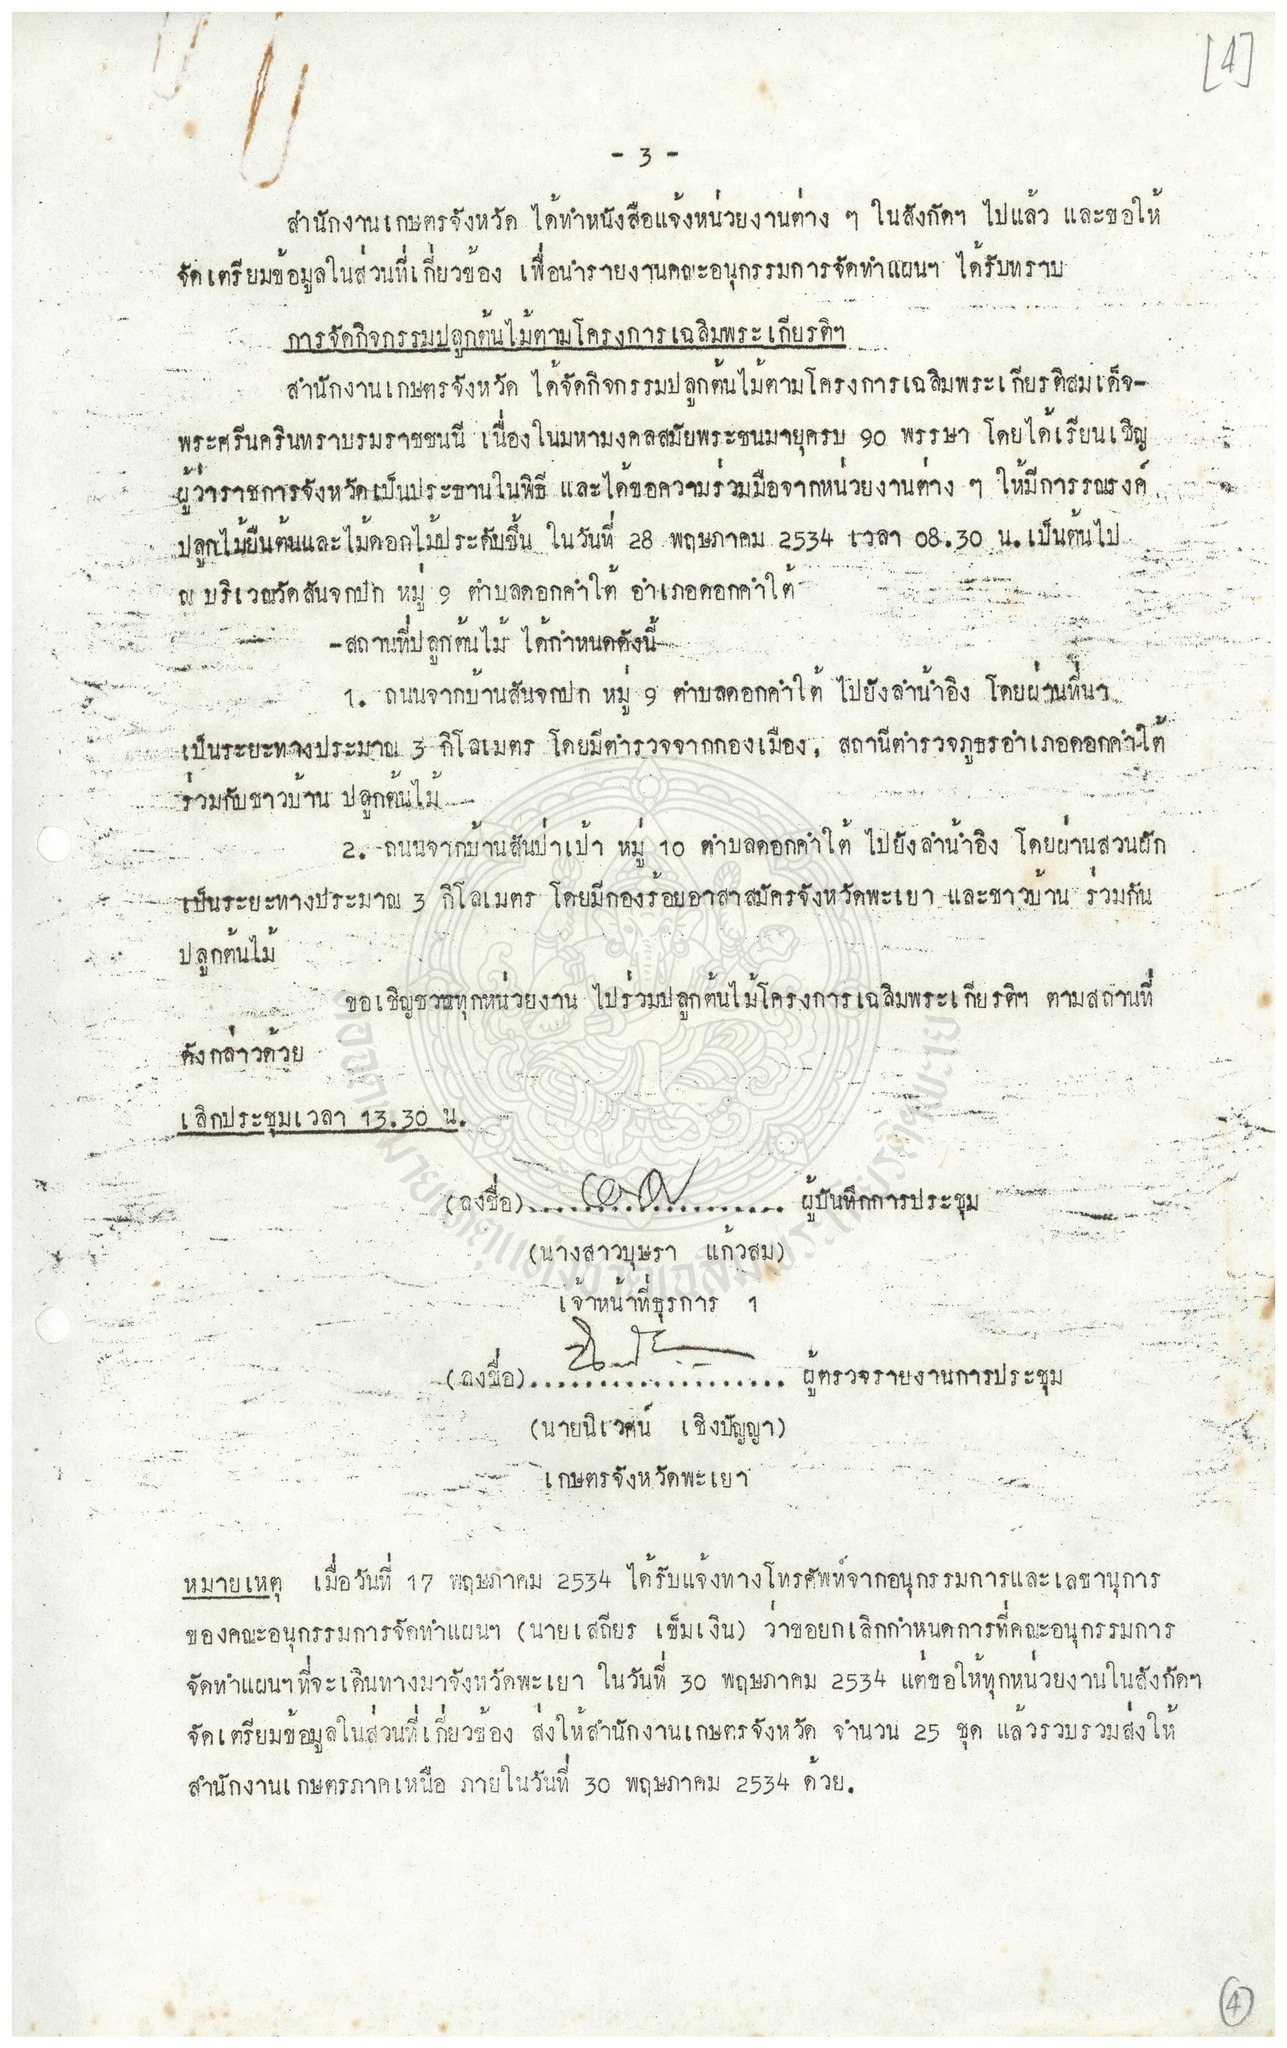 [4]
- 3 -
สำนักงานเกษตรจังหวัด ได้ทำหนังสือแจ้งหน่วยงานต่าง ๆ ในสังกัดฯ ไปแล้ว และขอให้
จัดเตรียมข้อมูลในส่วนที่เกี่ยวข้อง เพื่อนำรายงานคณะอนุกรรมการจัดทำแผนฯ ได้รับทราบ
การจัดกิจกรรมปลูกต้นไม้ตามโครงการเฉลิมพระเกียรติฯ
สำนักงานเกษตรจังหวัด ได้จัดกิจกรรมปลูกต้นไม้ตามโครงการเฉลิมพระเกียรติสมเด็จ-
พระศรีนครินทราบรมราชชนนี เนื่องในมหามงคลสมัยพระชนมายุครบ 90 พรรษา โดยได้เรียนเชิญ
ผู้ว่าราชการจังหวัดเป็นประธานในพิธี และได้ขอความร่วมมือจากหน่วยงานต่าง ๆ ให้มีการรณรงค์
ปลูกไม้ยืนต้นและไม้ดอกไม้ประดับขึ้น ในวันที่ 28 พฤษภาคม 2534 เวลา 08.30 น. เป็นต้นไป
ณ บริเวณวัดสันจกปก หมู่ 9 ตำบลดอกคำใต้ อำเภอดอกคำใต้
-สถานที่ปลูกต้นไม้ ได้กำหนดดังนี้
1. ถนนจากบ้านสันจกปก หมู่ 9 ตำบลดอกคำใต้ ไปยังลำน้ำอิง โดยผ่านที่นา
เป็นระยะทางประมาณ 3 กิโลเมตร โดยมีตำรวจจากกองเมือง, สถานีตำรวจภูธรอำเภอดอกคำใต้
ร่วมกับชาวบ้าน ปลูกต้นไม้
2. ถนนจากบ้านสันป่าเป้า หมู่ 10 ตำบลดอกคำใต้ ไปยังลำน้ำอิง โดยผ่านสวนผัก
เป็นระยะทางประมาณ 3 กิโลเมตร โดยมีกองร้อยอาสาสมัครจังหวัดพะเยา และชาวบ้าน ร่วมกัน
ปลูกต้นไม้
ขอเชิญชวนทุกหน่วยงาน ไปร่วมปลูกต้นไม้โครงการเฉลิมพระเกียรติฯ ตามสถานที่
ดังกล่าวด้วย
เลิกประชุมเวลา 13.30 น.
(ลงชื่อ)..................... ผู้บันทึกการประชุม
(นางสาวบุษรา แก้วสม)
เจ้าหน้าที่ธุรการ 1
(ลงชื่อ)..................... ผู้ตรวจรายงานการประชุม
(นายนิเวศน์ เชิงปัญญา)
เกษตรจังหวัดพะเยา
หมายเหตุ เมื่อวันที่ 17 พฤษภาคม 2534 ได้รับแจ้งทางโทรศัพท์จากอนุกรรมการและเลขานุการ
ของคณะอนุกรรมการจัดทำแผนฯ (นายเสถียร เข็มเงิน) ว่าขอยกเลิกกำหนดการที่คณะอนุกรรมการ
จัดทำแผนฯที่จะเดินทางมาจังหวัดพะเยา ในวันที่ 30 พฤษภาคม 2534 แต่ขอให้ทุกหน่วยงานในสังกัดฯ
จัดเตรียมข้อมูลในส่วนที่เกี่ยวข้อง ส่งให้สำนักงานเกษตรจังหวัด จำนวน 25 ชุด แล้วรวบรวมส่งให้
สำนักงานเกษตรภาคเหนือ ภายในวันที่ 30 พฤษภาคม 2534 ด้วย.
4